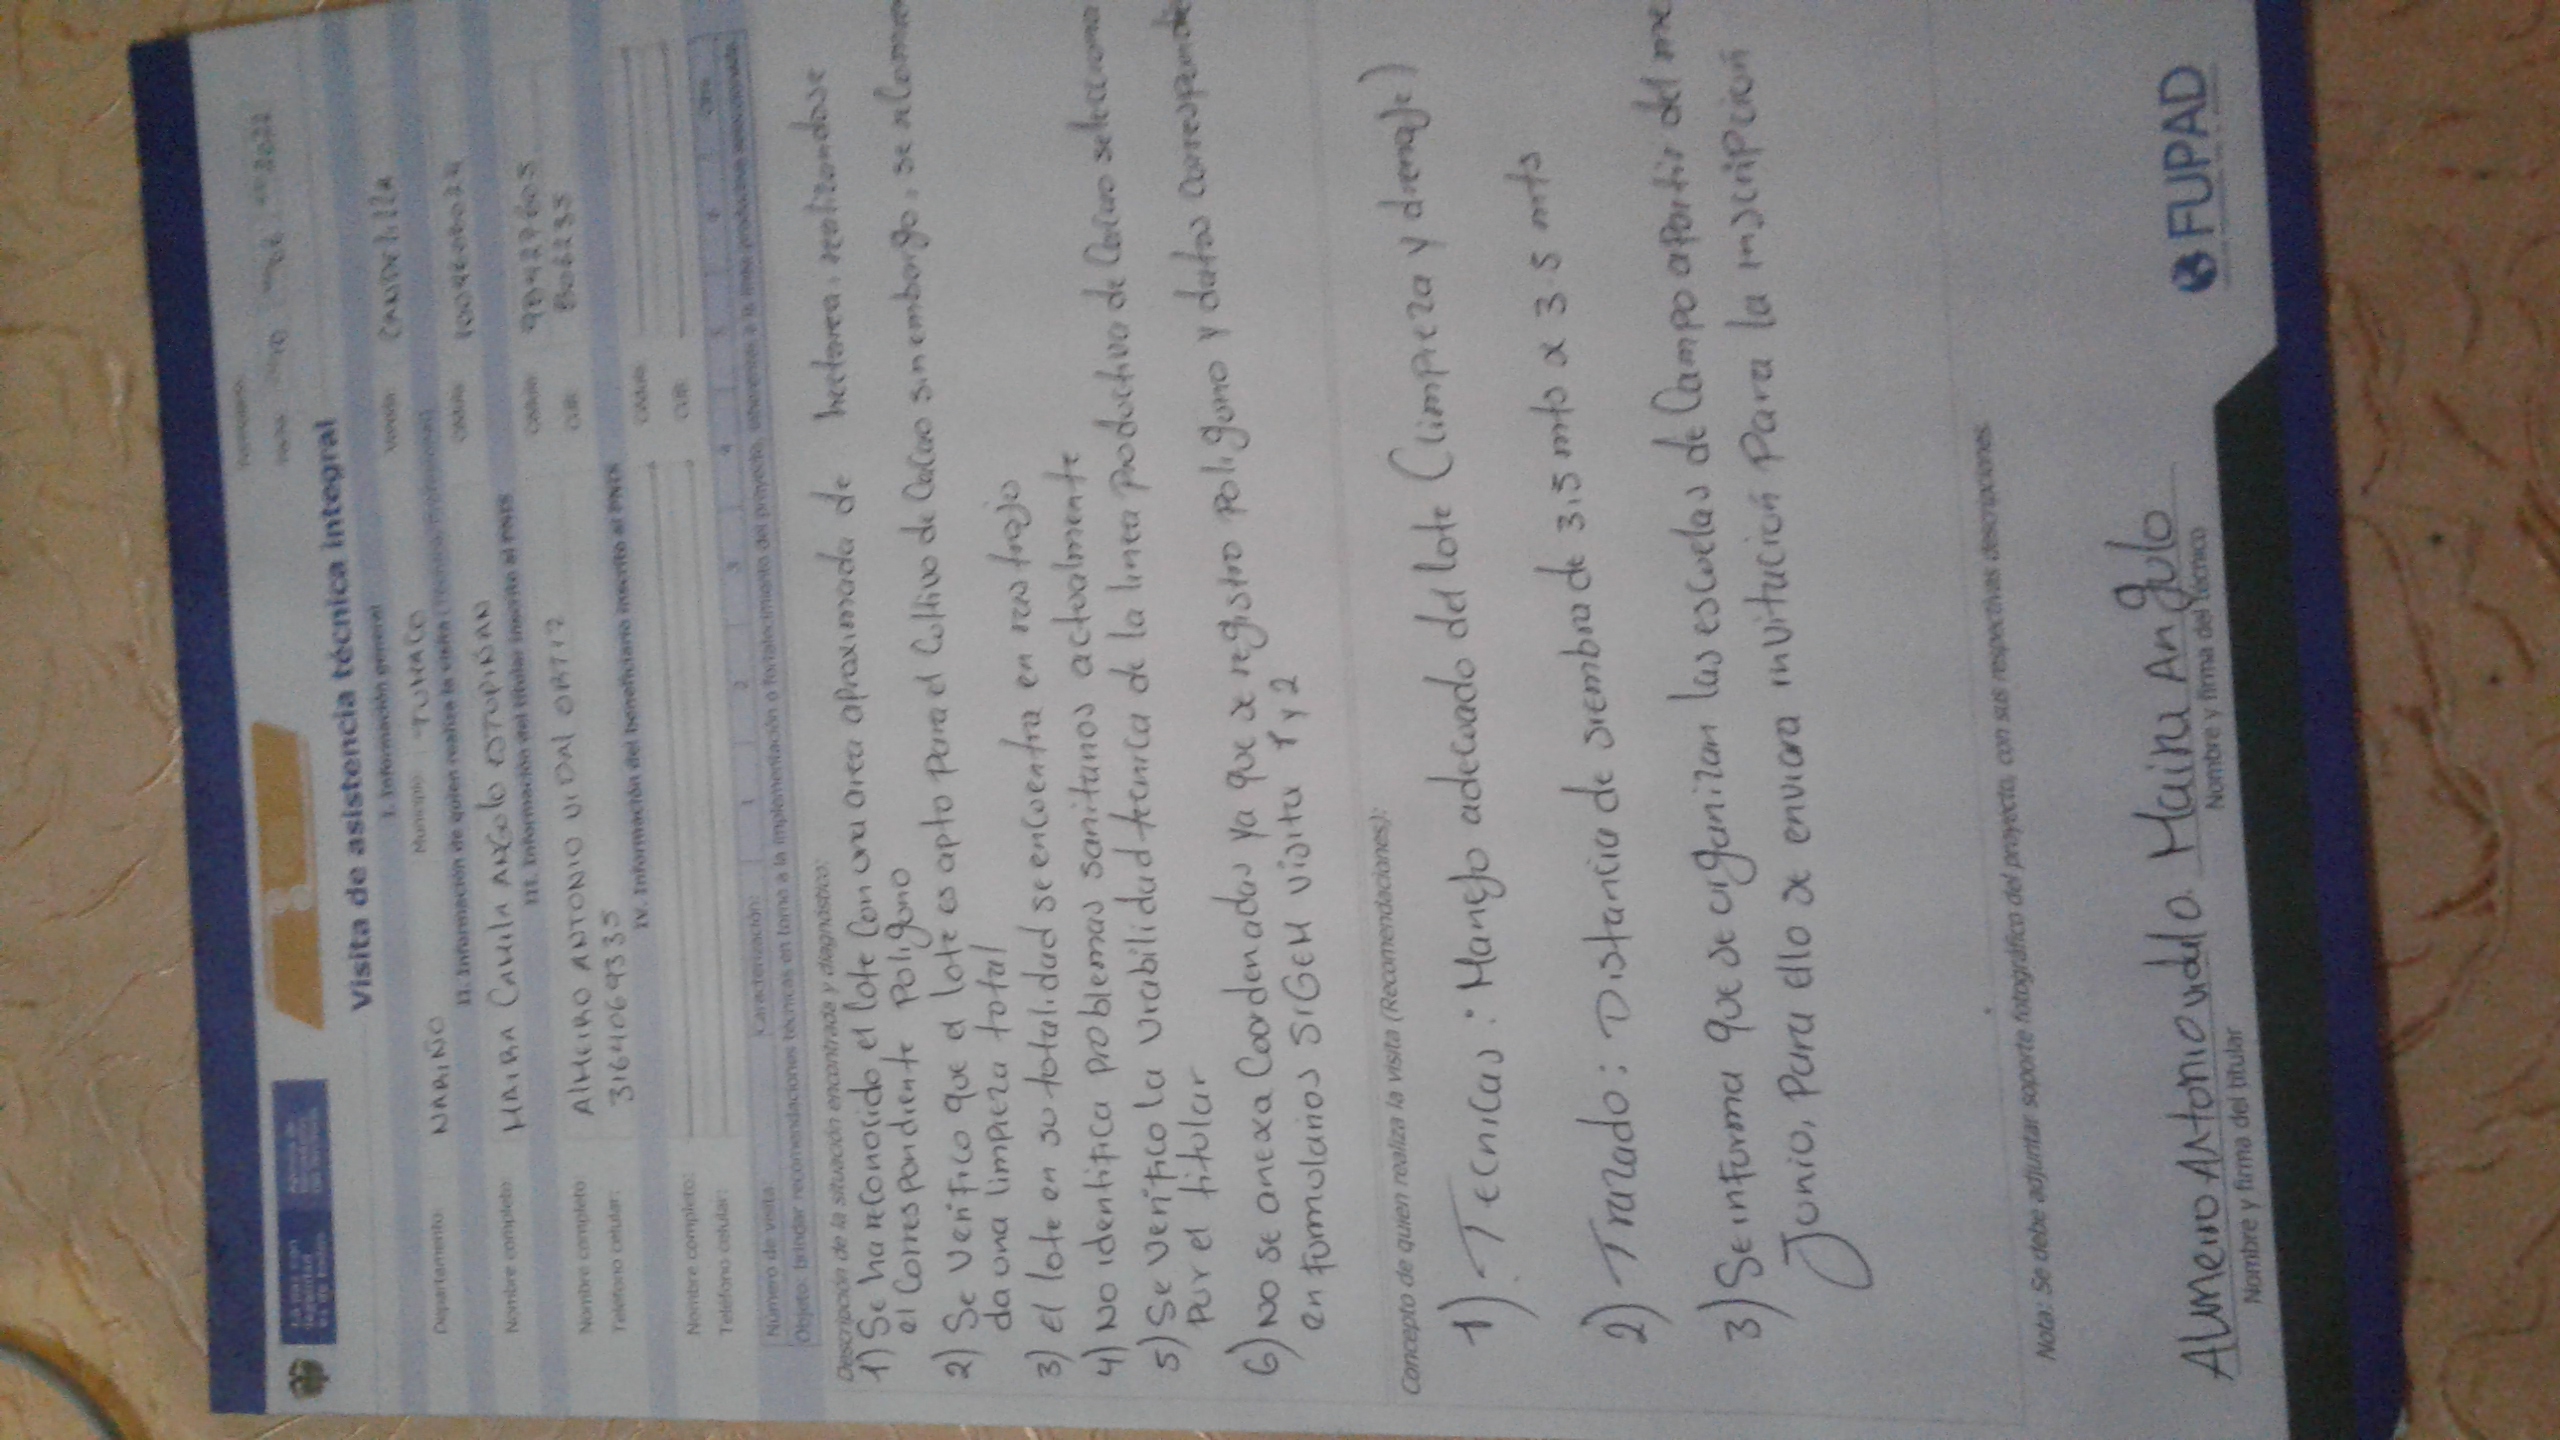 Visita de asistencia técnica integral
Fecha 2022
I. Información general
Departamento: NARIÑO Municipio TUMACO Vereda CANDELILLA
II. Información de quien realiza la visita
Nombre completo MAIRA CAMILA ANGULO ESTUPIÑAN Cédula
III. Información del titular inscrito al PNIS
Nombre completo ALMEIRO ANTONIO VIDAL ORTIZ Cédula
Teléfono celular: 3164069335 CUB
IV. Información del beneficiario inscrito al PNIS
Nombre completo: Cédula
Teléfono celular: CUB
Número de visita: Caracterización: 1 2 3 4 5 6 7 Otra
Objeto: brindar recomendaciones técnicas en torno a la implementación o fortalecimiento del proyecto, inherentes a la línea productiva seleccionada.
Descripción de la situación encontrada y diagnóstico:
1) Se ha reconocido el lote con una area aproximada de hectarea, realizandose
el correspondiente poligono
2) Se verifico que el lote es apto para el cultivo de cacao sin embargo, se
da una limpieza total
3) el lote en su totalidad se encuentra en rastrojo
4) No identifica problemas sanitarios actualmente
5) Se verifico la viabilidad tecnica de la linea productiva de cacao selecciona
por el titular
6) No se anexa coordenadas ya que se registro poligono y datos corresponde
en formularios SIGEM visita 1 y 2
Concepto de quien realiza la visita (Recomendaciones):
1) Tecnicas: Manejo adecuado del lote (limpieza y drenaje)
2) Trazado: Distancia de siembra de 3,5 mts x 3.5 mts
3) Se informa que se organizan las escuelas de campo apartir del me
Junio, para ello se enviara invitación para la inscripción
Nota: Se debe adjuntar soporte fotográfico del proyecto, con sus respectivas descripciones.
Almeiro Antonio vidal o. Maira Angulo
Nombre y firma del titular Nombre y firma del técnico
FUPAD